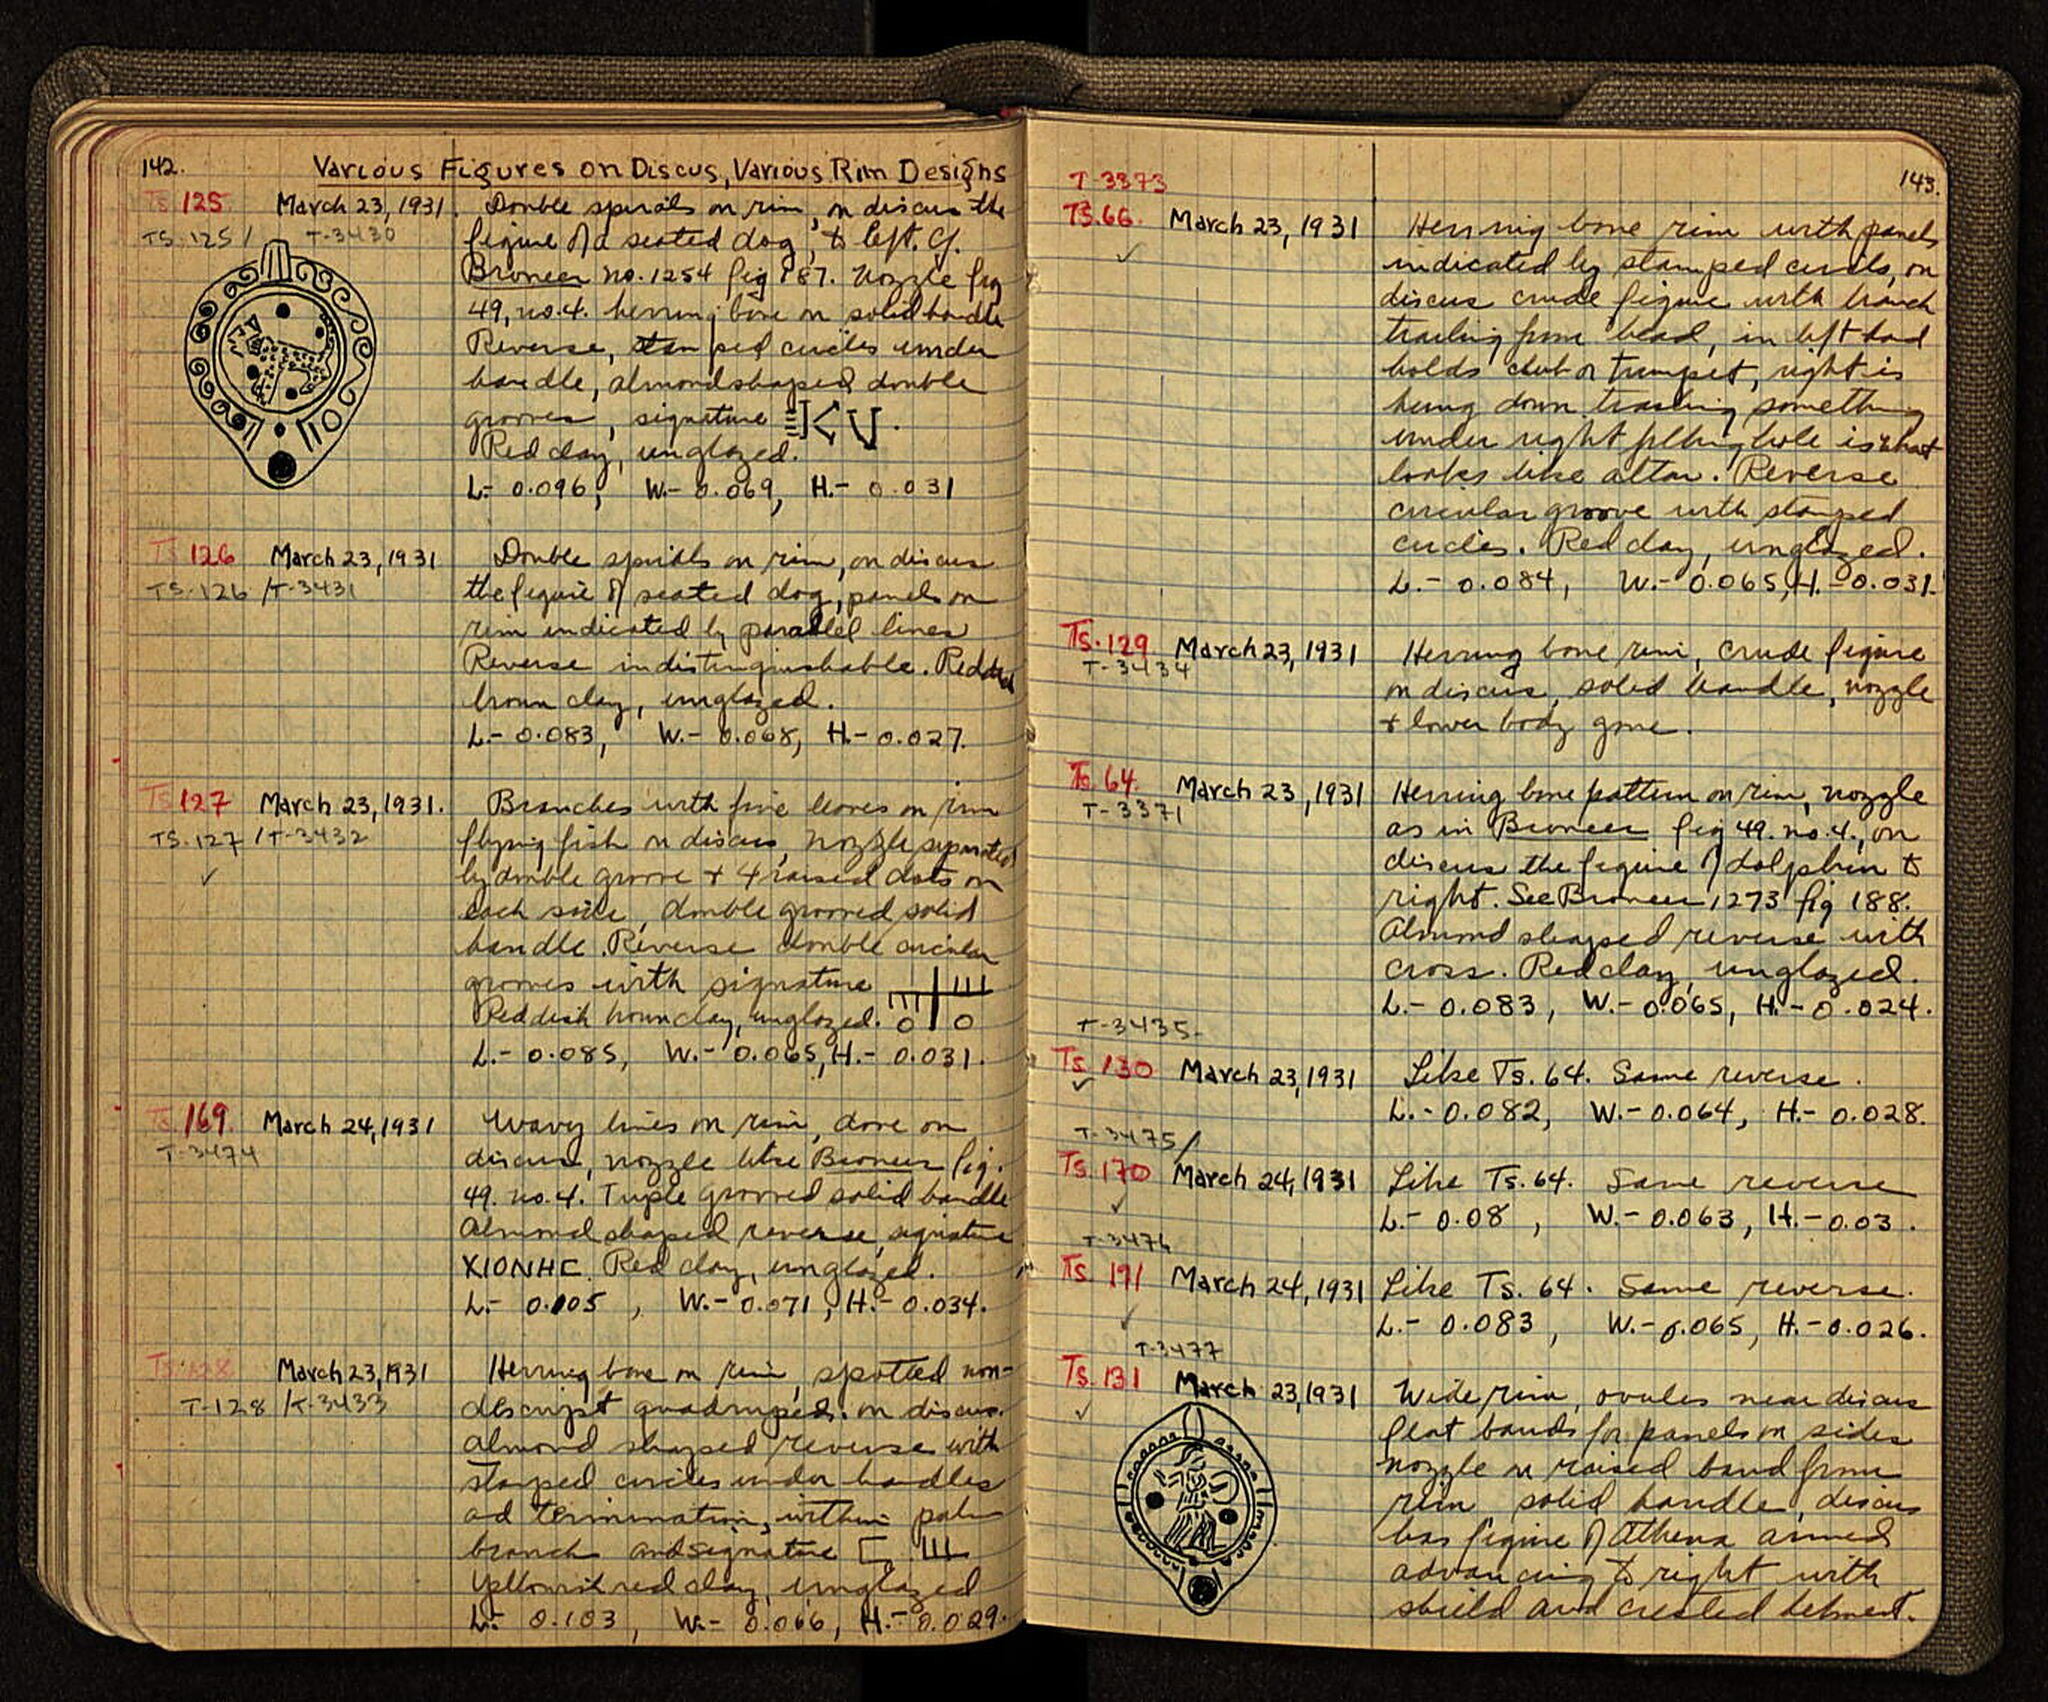 142.
Various Figures on Discus, Various Rim Designs
Ts 125 March 23, 1931. Double spirals on rim, on discus the
TS.125 / T-3430 figure of a seated dog, to left. Cf.
Broneer no. 1254 fig 187. Nozzle fig
49, no. 4. herring bone on solid handle
Reverse, stamped circles under
handle, almond shaped double
grooves, signature
Red clay, unglazed.
L.- 0.096, W.- 0.069, H.- 0.031
Ts 126 March 23, 1931 Double spirals on rim, on discus
TS.126 /T-3431 the figure of seated dog, panels on
rim indicated by parallel lines
Reverse indistinguishable. Reddish
brown clay, unglazed.
L.- 0.083, W.- 0.068, H.- 0.027.
Ts 127 March 23, 1931. Branches with five leaves on rim
TS.127 /T-3432 flying fish on discus, nozzle separated
by double groove + 4 raised dots on
each side, double grooved solid
handle. Reverse double circular
grooves with signature
Reddish brown clay, unglazed.
L.- 0.085, W.- 0.065, H.- 0.031.
Ts. 169 March 24, 1931 Wavy lines on rim, dove on
T-3474 discus, nozzle like Broneer fig.
49. no. 4. Triple grooved solid handle
Almond shaped reverse, signature
XIONHC. Red clay, unglazed.
L.- 0.105, W.- 0.071, H.- 0.034.
Ts. 128 March 23, 1931 Herring bone on rim, spotted non-
T-128 /T-3433 descript quadruped on discus.
Almond shaped reverse with
stamped circles under handles
ad termination, within palm
branch and signature
Yellowish red clay, unglazed
L.- 0.103, W.- 0.066, H.- 0.029.
143.
T-3373
Ts. 66. March 23, 1931 Herring bone rim with panels
indicated by stamped circles, on
discus crude figure with branch
trailing from head, in left hand
holds club or trumpet, right is
hung down trailing something
under right filling hole is what
looks like altar. Reverse
circular groove with stamped
circles. Red clay, unglazed.
L.- 0.084, W.- 0.065, H.- 0.031.
Ts. 129 March 23, 1931 Herring bone rim, crude figure
T-3434 on discus, solid handle, nozzle
+ lower body gone.
Ts. 64. March 23, 1931 Herring bone pattern on rim, nozzle
T-3371 as in Broneer fig 49. no. 4, on
discus the figure of dolphin to
right. See Broneer, 1273 fig 188.
Almond shaped reverse with
cross. Red clay, unglazed.
L.- 0.083, W.- 0.065, H.- 0.024.
T-3435
Ts. 130 March 23, 1931 Like Ts. 64. Same reverse.
L.- 0.082, W.- 0.064, H.- 0.028.
T-3475/
Ts. 170 March 24, 1931 Like Ts. 64. Same reverse
L.- 0.08, W.- 0.063, H.- 0.03.
T-3476
Ts. 171 March 24, 1931 Like Ts. 64. Same reverse.
L.- 0.083, W.- 0.065, H.- 0.026.
T-3477
Ts. 131 March 23, 1931 Wide rim, ovules near discus
flat bands for panels on sides
nozzle on raised band from
rim solid handle, discus
has figure of Athena armed
advancing to right with
shield and crested helmet.